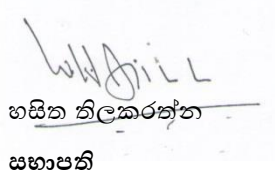 හසිත තිලකරත්න
සභාපති